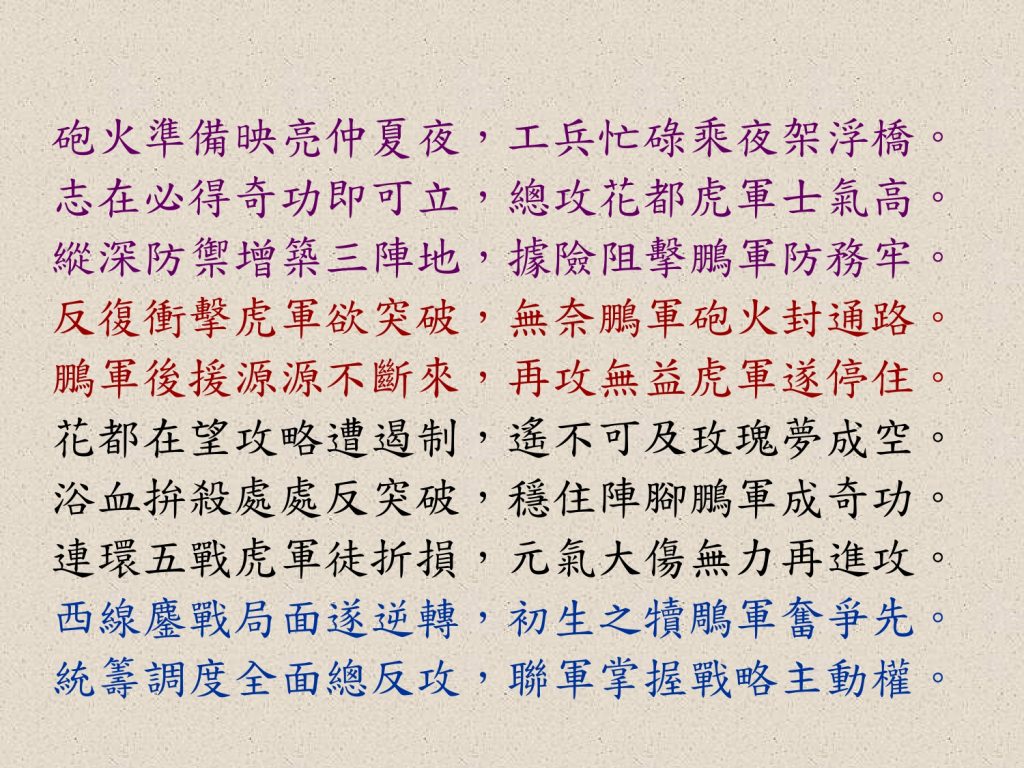 砲火準備映亮仲夏夜，工兵忙碌乘夜架浮橋。
志在必得奇功即可立，總攻花都虎軍士氣高。
縱深防禦增築三陣地，據險阻擊鵬軍防務牢。
反復衝擊虎軍欲突破，無奈鵬軍砲火封通路。
鵬軍後援源源不斷來，再攻無益虎軍遂停住。
花都在望攻略遭遏制，遙不可及玫瑰夢成空。
浴血拚殺處處反突破，穩住陣腳鵬軍成奇功。
連環五戰虎軍徒折損，元氣大傷無力再進攻。
西線鏖戰局面遂逆轉，初生之犢鵰軍奮爭先。
統籌調度全面總反攻，聯軍掌握戰略主動權。